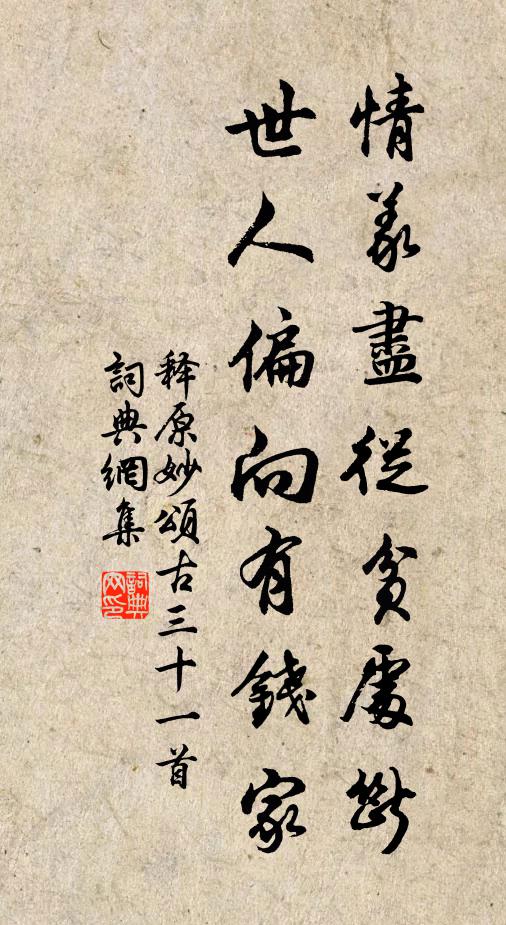 情義盡從貧處斷
世人偏向有錢家
释原妙頌古三十一首
詞典網集
詞典网印